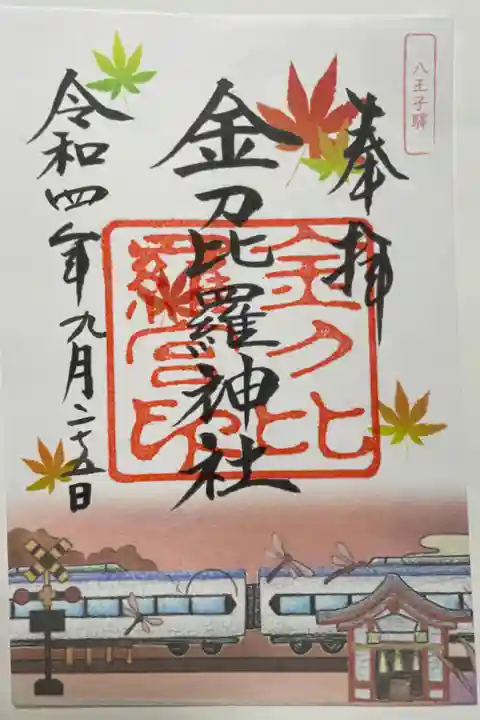 八王子驛
奉拝
金刀比羅神社
金刀比
羅宮印
令和四年九月二十五日